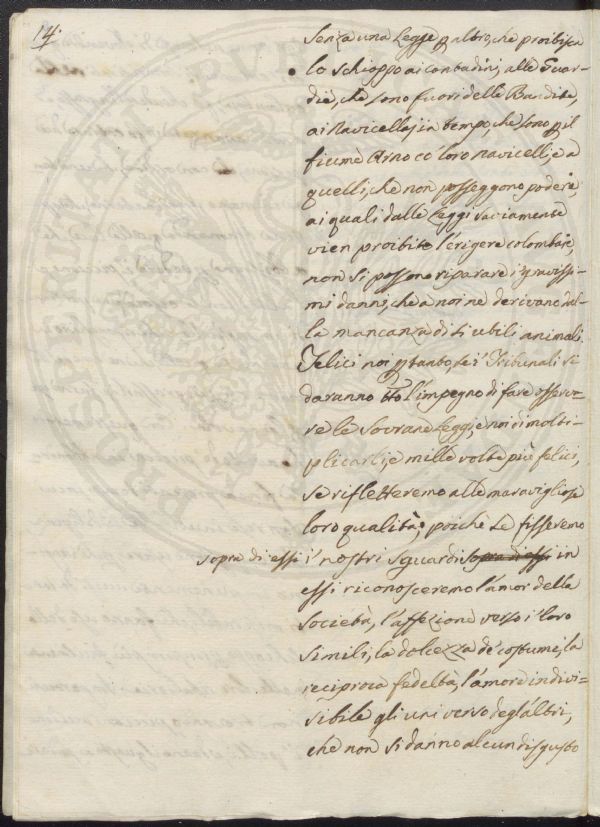 14.
Senza una Legge p altro, che proibisca
lo schioppo ai contadini, alle Guar-
die, che sono fuori delle Bandite,
ai Navicellaj in tempo, che sono p il
fiume Arno co' loro navicelli, e a
quelli, che non posseggono podere,
ai quali dalle Leggi saviamente
vien proibito l'erigere colombaje,
non si possono riparare i gravissi-
mi danni, che a noi ne derivano dal-
la mancanza di sì utili animali.
Felici noi ptanto, se i Tribunali si
daranno tto l'impegno di fare osserva-
re le Sovrane Leggi, e noi di molti-
plicarli, e mille volte più felici,
se rifletteremo alle maravigliose
loro qualità; poiché se fisseremo
sopra di essi i nostri sguardi sopra di essi in
essi riconosceremo l'amor della
Società, l'affezione verso i loro
simili, la dolcezza de' costumi, la
reciproca fedeltà, l'amore indivi-
sibile gli uni verso degl'altri,
che non si danno alcun disgusto